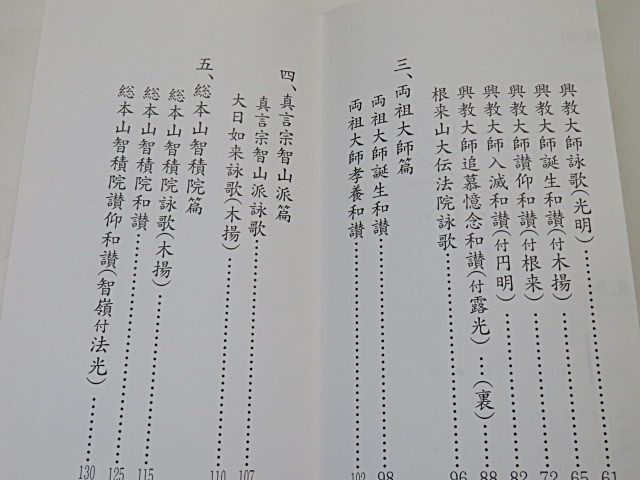 興教大師詠歌(光明)……61
興教大師誕生和讃(付木揚)……65
興教大師讃仰和讃(付根来)……72
興教大師入滅和讃(付円明)……82
興教大師追慕憶念和讃(付露光)…(裏)……88
根来山大伝法院詠歌……96
三、両祖大師篇
両祖大師誕生和讃……98
両祖大師孝養和讃……102
四、真言宗智山派篇
真言宗智山派詠歌……107
大日如来詠歌(木揚)……110
五、総本山智積院篇
総本山智積院詠歌(木揚)……115
総本山智積院和讃……125
総本山智積院讃仰和讃(智嶺付法光)……130